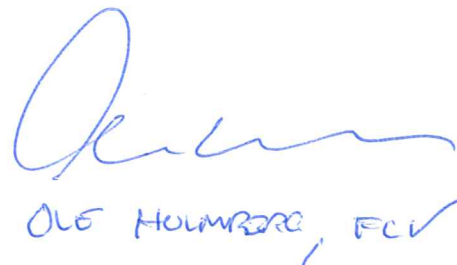 OLE HOLMBERG, FCV